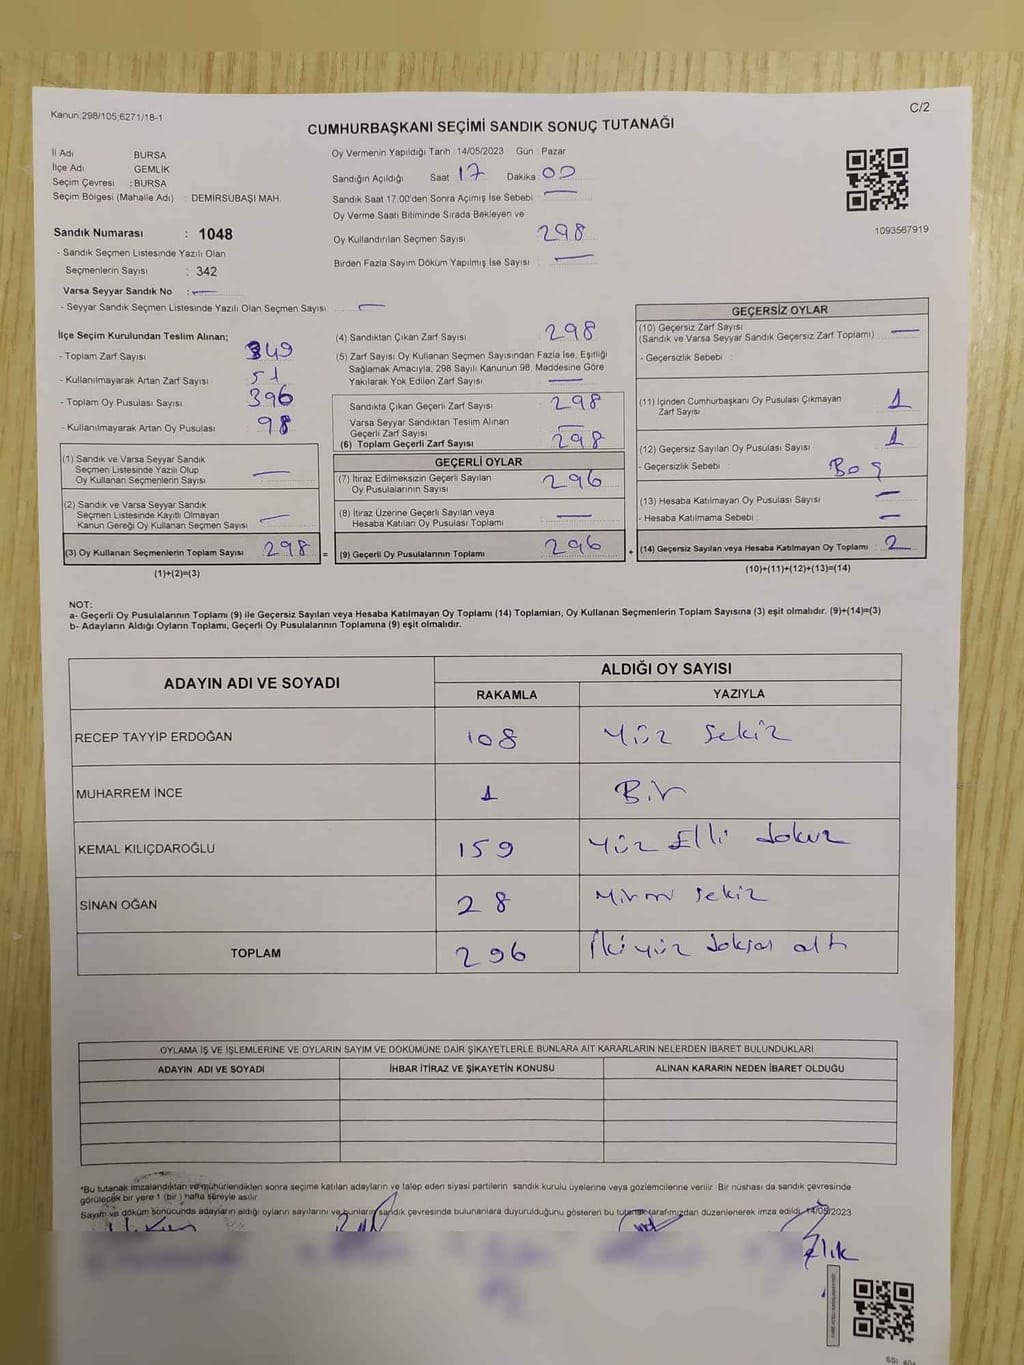 Kanun;298/105;6271/18-1
C/2
CUMHURBAŞKANI SEÇİMİ SANDIK SONUÇ TUTANAĞI
İl Adı BURSA
İlçe Adı GEMLİK
Seçim Çevresi : BURSA
Seçim Bölgesi (Mahalle Adı) : DEMİRSUBAŞI MAH.
Sandık Numarası : 1048
- Sandık Seçmen Listesinde Yazılı Olan
Seçmenlerin Sayısı : 342
Varsa Seyyar Sandık No : —
- Seyyar Sandık Seçmen Listesinde Yazılı Olan Seçmen Sayısı: —
Oy Vermenin Yapıldığı Tarih :14/05/2023 Gün : Pazar
Sandığın Açıldığı Saat 17 Dakika 00
Sandık Saat 17:00'den Sonra Açımış İse Sebebi —
Oy Verme Saati Bitiminde Sırada Bekleyen ve
Oy Kullandırılan Seçmen Sayısı 298
Birden Fazla Sayım Döküm Yapılmış İse Sayısı : —
1093567919
İlçe Seçim Kurulundan Teslim Alınan;
- Toplam Zarf Sayısı 349
- Kullanılmayarak Artan Zarf Sayısı 51
- Toplam Oy Pusulası Sayısı 396
- Kullanılmayarak Artan Oy Pusulası 98
(1) Sandık ve Varsa Seyyar Sandık
Seçmen Listesinde Yazılı Olup
Oy Kullanan Seçmenlerin Sayısı —
(2) Sandık ve Varsa Seyyar Sandık
Seçmen Listesinde Kayıtlı Olmayan
Kanun Gereği Oy Kullanan Seçmen Sayısı —
(3) Oy Kullanan Seçmenlerin Toplam Sayısı 298 =
(1)+(2)=(3)
(4) Sandıktan Çıkan Zarf Sayısı 298
(5) Zarf Sayısı Oy Kullanan Seçmen Sayısından Fazla İse, Eşitliği
Sağlamak Amacıyla; 298 Sayılı Kanunun 98. Maddesine Göre
Yakılarak Yok Edilen Zarf Sayısı —
Sandıkta Çıkan Geçerli Zarf Sayısı 298
Varsa Seyyar Sandıktan Teslim Alınan
Geçerli Zarf Sayısı —
(6) Toplam Geçerli Zarf Sayısı 298
GEÇERLİ OYLAR
(7) İtiraz Edilmeksizin Geçerli Sayılan
Oy Pusulalarının Sayısı 296
(8) İtiraz Üzerine Geçerli Sayılan veya
Hesaba Katılan Oy Pusulası Toplamı —
(9) Geçerli Oy Pusulalarının Toplamı 296 +
GEÇERSİZ OYLAR
(10) Geçersiz Zarf Sayısı
(Sandık ve Varsa Seyyar Sandık Geçersiz Zarf Toplamı) —
- Geçersizlik Sebebi :
(11) İçinden Cumhurbaşkanı Oy Pusulası Çıkmayan
Zarf Sayısı 1
(12) Geçersiz Sayılan Oy Pusulası Sayısı 1
- Geçersizlik Sebebi : Boş
(13) Hesaba Katılmayan Oy Pusulası Sayısı —
- Hesaba Katılmama Sebebi : —
(14) Geçersiz Sayılan veya Hesaba Katılmayan Oy Toplamı : 2
(10)+(11)+(12)+(13)=(14)
NOT:
a- Geçerli Oy Pusulalarının Toplamı (9) ile Geçersiz Sayılan veya Hesaba Katılmayan Oy Toplamı (14) Toplamları, Oy Kullanan Seçmenlerin Toplam Sayısına (3) eşit olmalıdır. (9)+(14)=(3)
b- Adayların Aldığı Oyların Toplamı, Geçerli Oy Pusulalarının Toplamına (9) eşit olmalıdır.
ADAYIN ADI VE SOYADI
ALDIĞI OY SAYISI
RAKAMLA YAZIYLA
RECEP TAYYİP ERDOĞAN 108 Yüz Sekiz
MUHARREM İNCE 1 Bir
KEMAL KILIÇDAROĞLU 159 Yüz Elli dokuz
SİNAN OĞAN 28 Yirmi sekiz
TOPLAM 296 İki yüz doksan altı
OYLAMA İŞ VE İŞLEMLERİNE VE OYLARIN SAYIM VE DÖKÜMÜNE DAİR ŞİKAYETLERLE BUNLARA AİT KARARLARIN NELERDEN İBARET BULUNDUKLARI
ADAYIN ADI VE SOYADI İHBAR İTİRAZ VE ŞİKAYETİN KONUSU ALINAN KARARIN NEDEN İBARET OLDUĞU
*Bu tutanak imzalandıktan ve mühürlendikten sonra seçime katılan adayların ve talep eden siyasi partilerin sandık kurulu üyelerine veya gözlemcilerine verilir. Bir nüshası da sandık çevresinde
görülecek bir yere 1 (bir ) hafta süreyle asılır.
Sayım ve döküm sonucunda adayların aldığı oyların sayılarını ve bunların sandık çevresinde bulunanlara duyurulduğunu gösteren bu tutanak tarafımızdan düzenlenerek imza edildi. 14/05/2023